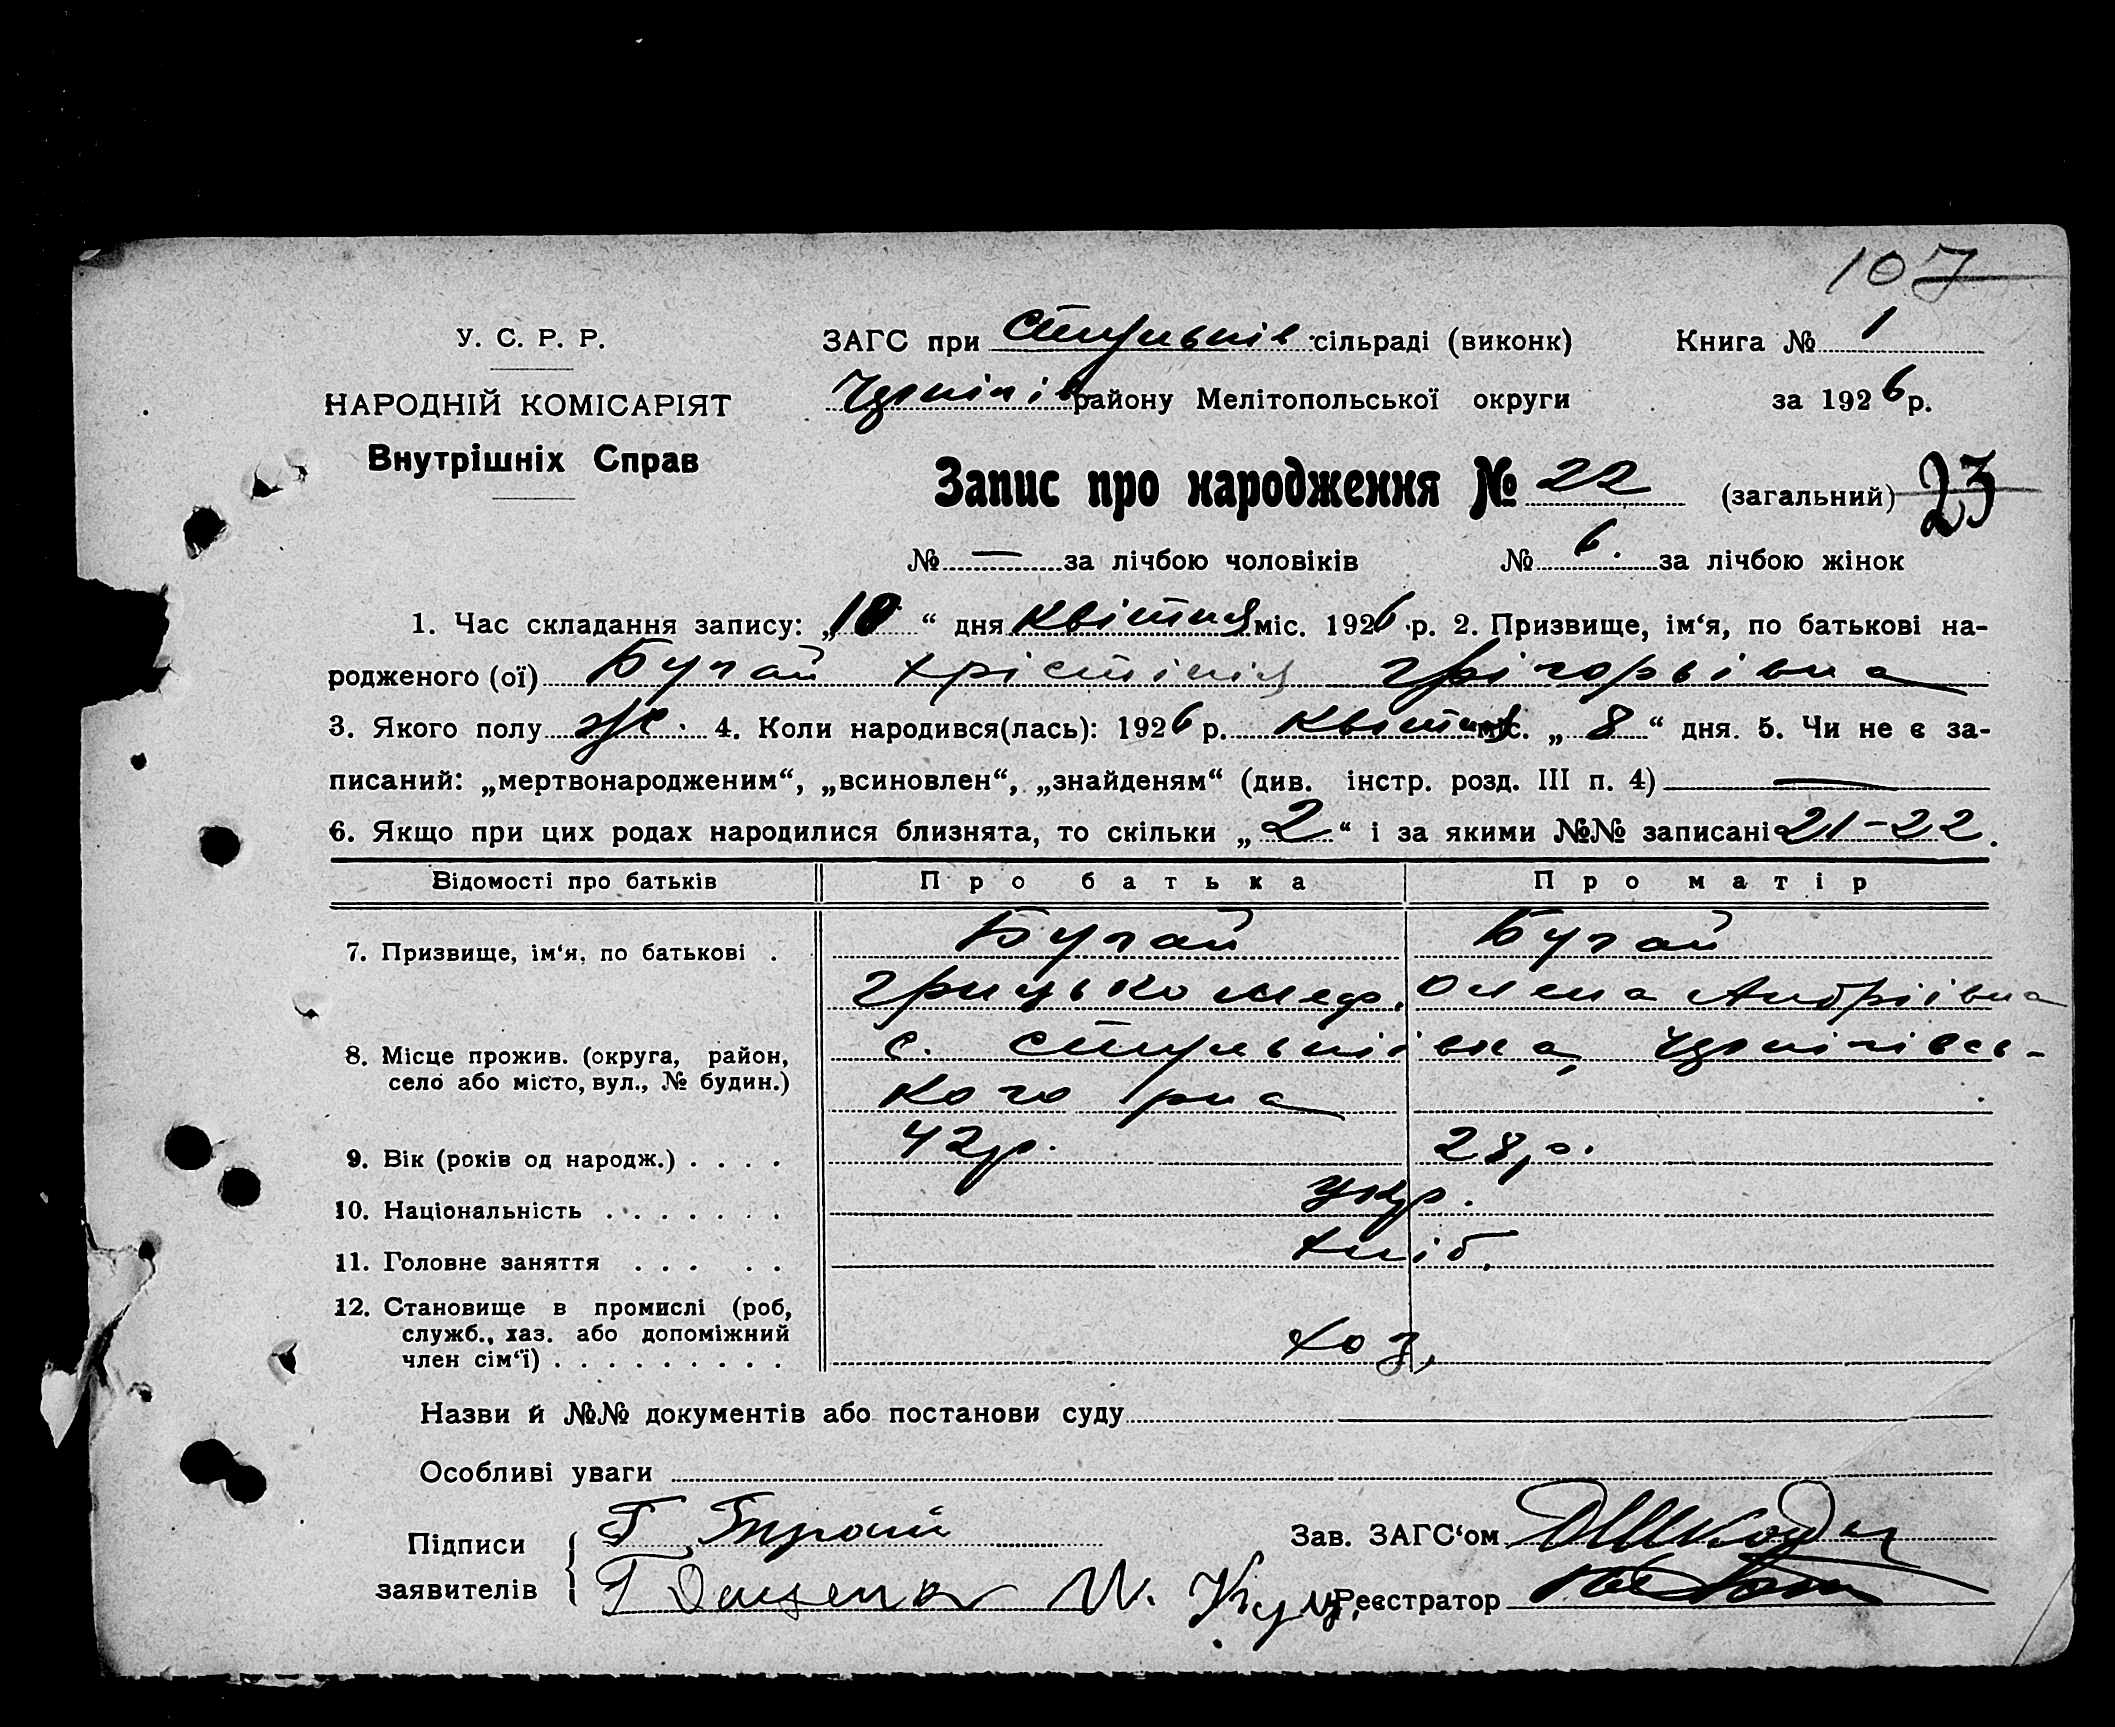 107
У. С. Р. Р.
НАРОДНІЙ КОМІСАРІЯТ
Внутрішніх Справ
ЗАГС при Стульнів сільраді (виконк) Книга № 1
району Мелітопольської округи за 1926 р.
Запис про народження № 22 (загальний) 23
№ — за лічбою чоловіків № 6. за лічбою жінок
1. Час складання запису: „10“ дня Квітня міс. 1926 р. 2. Призвище, ім‘я, по батькові на-
родженого (ої) Бугай Хрістінія Грігорьівна
3. Якого полу ж. 4. Коли народився(лась): 1926 р. Квітня міс. „8“ дня. 5. Чи не є за-
писаний: „мертвонародженим“, „всиновлен“, „знайденям“ (див. інстр. розд. III п. 4) —
6. Якщо при цих родах народилися близнята, то скільки „2“ і за якими №№ записані 21-22.
Відомості про батьків Про батька Про матір
7. Призвище, ім‘я, по батькові . Бугай Бугай
Грицько Меф. Олена Андріівна
8. Місце прожив. (округа, район, с. Стульніівка, Чернігівсь-
село або місто, вул., № будин.) кого р-на
9. Вік (років од народж.) . . . . 42 р. 28 р.
10. Національність . . . . . . . укр.
11. Головне заняття . . . . . хліб.
12. Становище в промислі (роб,
служб., хаз. або допоміжний
член сім‘ї) . . . . . . . . . хоз,
Назви й №№ документів або постанови суду
Особливі уваги
Підписи
заявителів
Зав. ЗАГС‘ом
Реєстратор